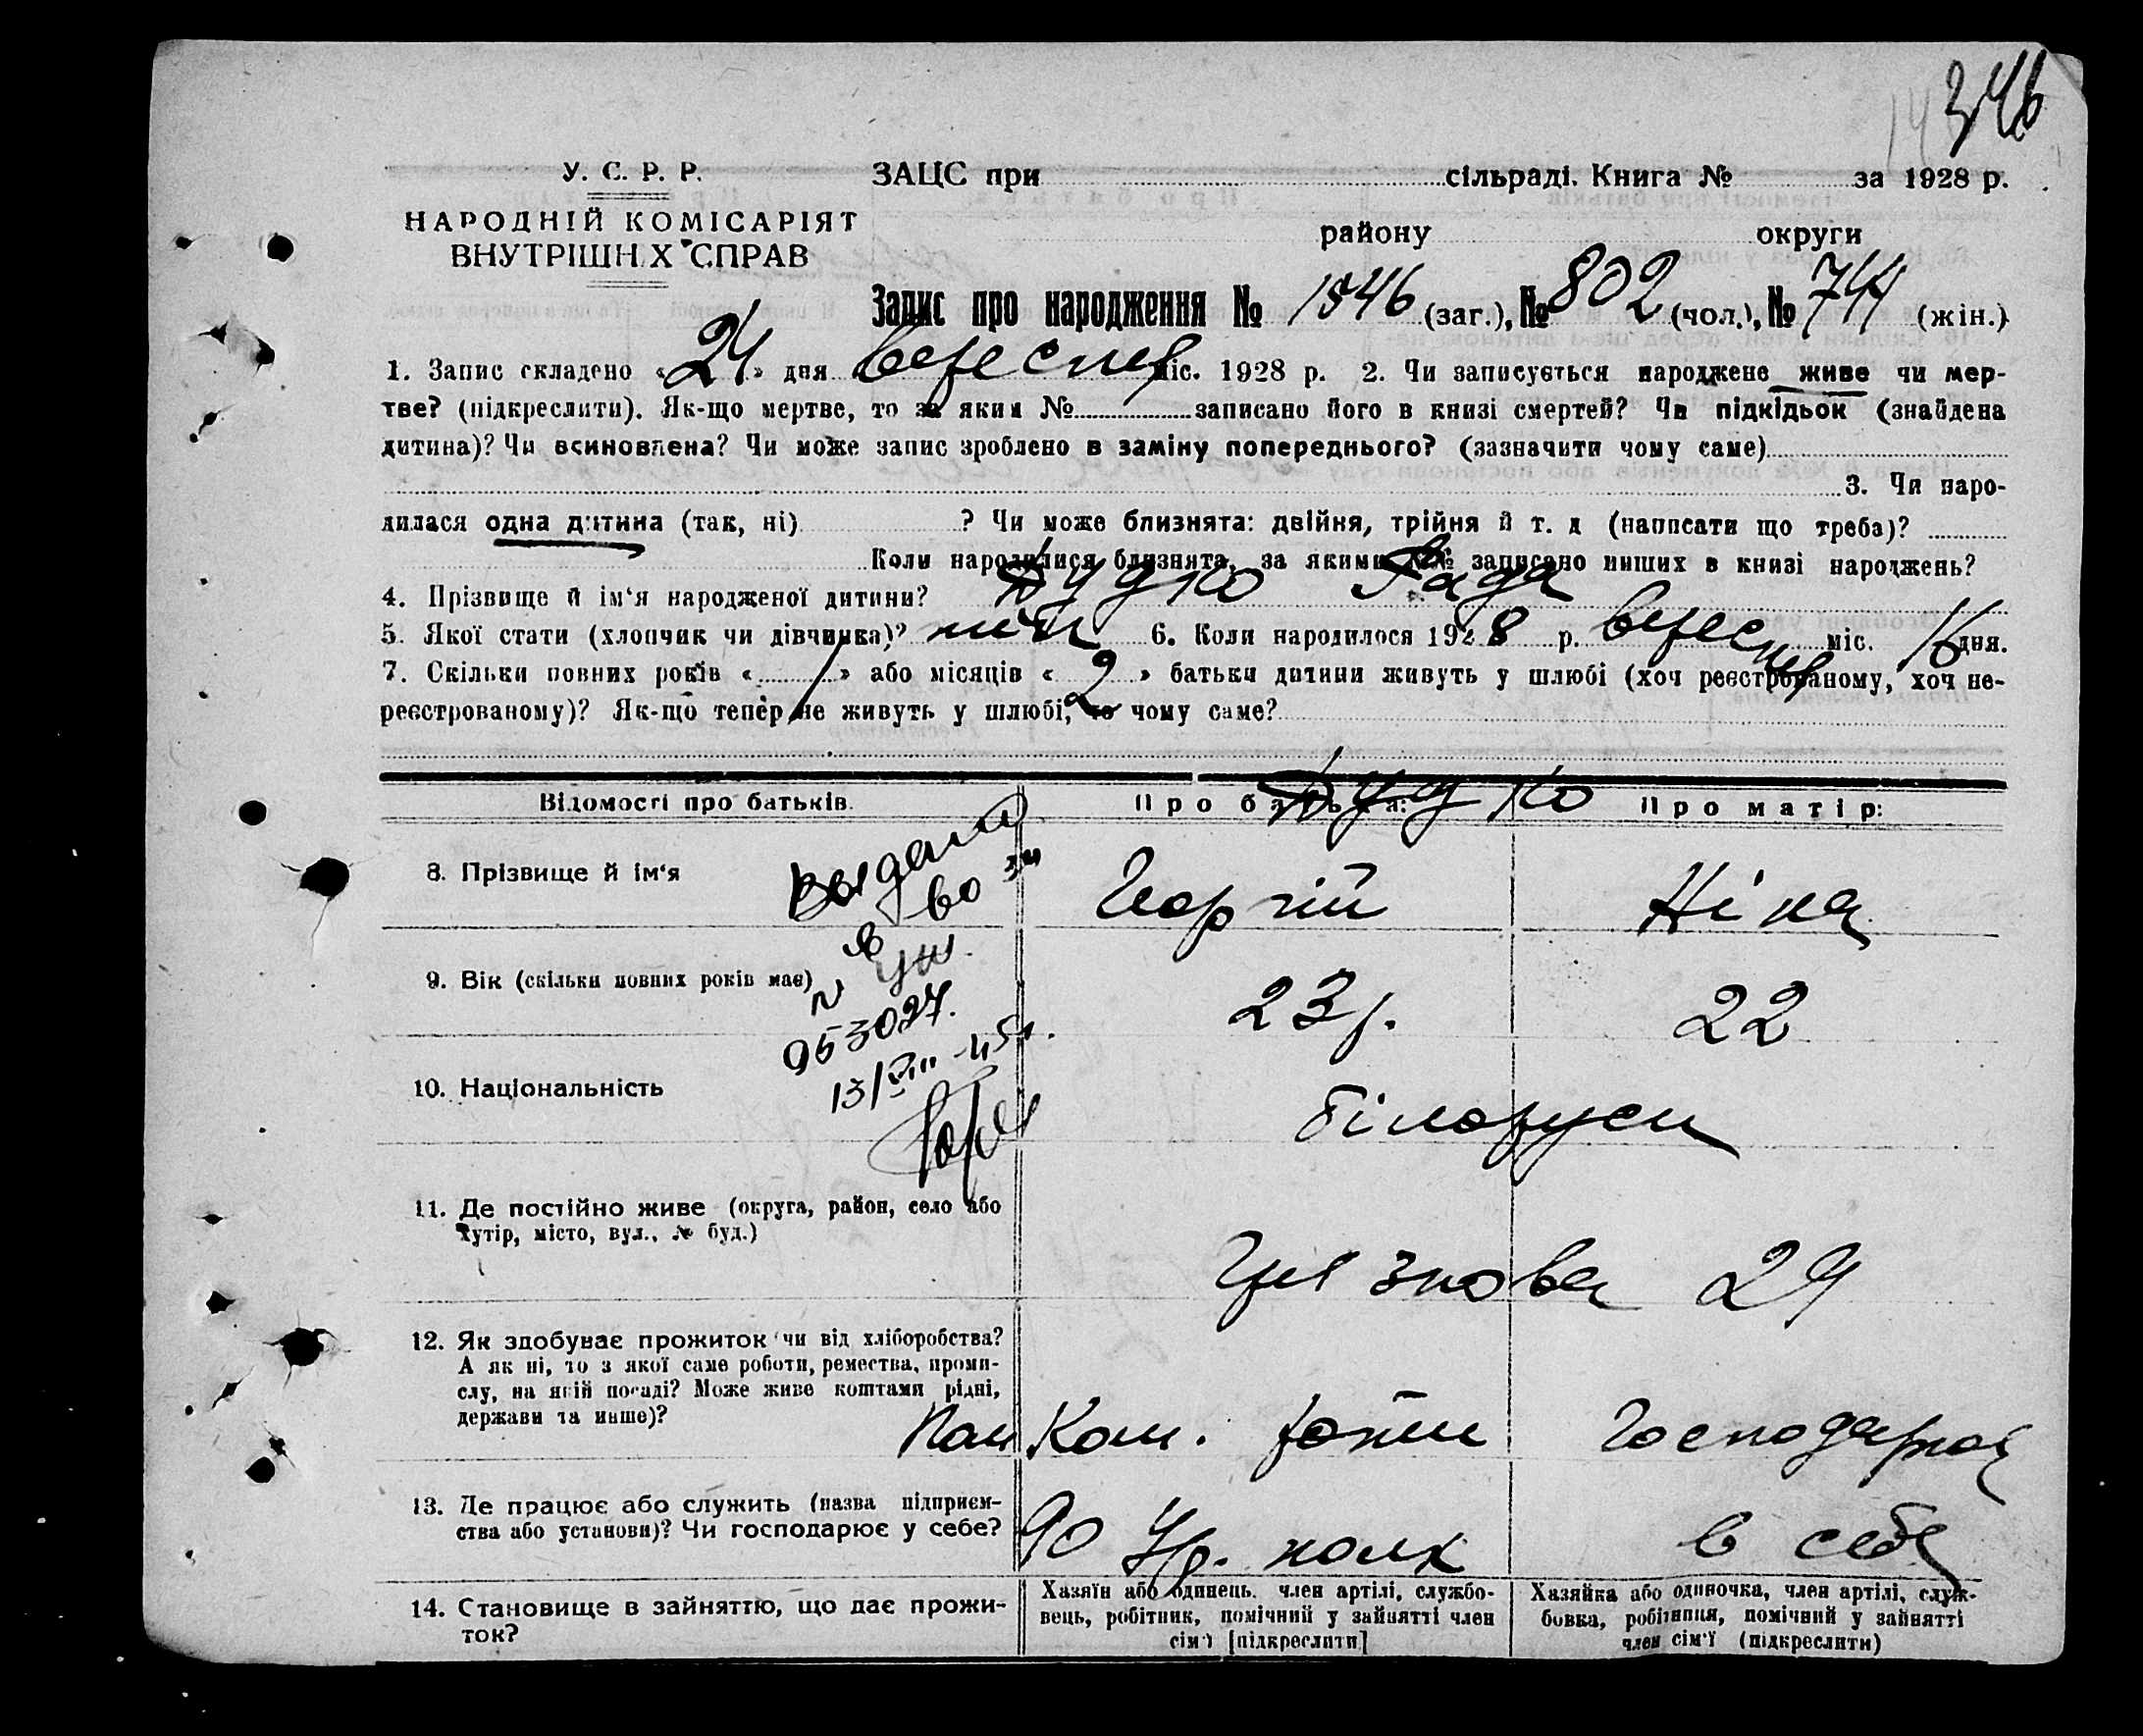 346
У. С. Р. Р.
НАРОДНІЙ КОМІСАРІЯТ
ВНУТРІШН.Х СПРАВ
ЗАЦС при сільраді. Книга № за 1928 р.
району округи
Запис про народження № 1546 (заг.), № 802 (чол.), № 744 (жін.)
1. Запис складено «24» дня вересня міс. 1928 р. 2. Чи записується народжене живе чи мер-
тве? (підкреслити). Як-що мертве, то за яким № записано його в книзі смертей? Чи підкідьок (знайдена
дитина)? Чи всиновлена? Чи може запис зроблено в заміну попереднього? (зазначити чому саме)
3. Чи наро-
дилася одна дитина (так, ні) ? Чи може близнята: двійня, трійня й т. д (написати що треба)?
Коли народилися близнята, за якими №№ записано инших в книзі народжень?
4. Прізвище й ім‘я народженої дитини? Дудко Рада
5. Якої стати (хлопчик чи дівчинка)? 6. Коли народилося 1928 р. вересня міс. 16 дня.
7. Скільки повних років « / » або місяців « 2 » батьки дитини живуть у шлюбі (хоч реєстрованому, хоч не-
реєстрованому)? Як-що тепер не живуть у шлюбі, то чому саме?
Відомості про батьків. Про батька: Про матір:
Дудко
8. Прізвище й ім‘я Георгій Ніна
9. Вік (скільки повних років має) 23 р. 22
10. Національність білоруси
11. Де постійно живе (округа, район, село або
хутір, місто, вул., № буд.)
Грязнова 29
12. Як здобуває прожиток чи від хліборобства?
А як ні, то з якої саме роботи, ремества, проми-
слу, на якій посаді? Може живе коштами рідні,
держави та инше)?
Пом Ком. роти Господарка
13. Де працює або служить (назва підприєм-
ства або установи)? Чи господарює у себе?
90 Ур. полк в себе
14. Становище в зайняттю, що дає прожи-
ток?
Хазяїн або одинець, член артілі, службо-
вець, робітник, помічний у зайнятті член
сім‘ї [підкреслити]
Хазяйка або одиночка, член артілі, служ-
бовка, робітниця, помічний у зайнятті
член сім‘ї (підкреслити)
Выдано
во
953027.
13/VIII-45г.